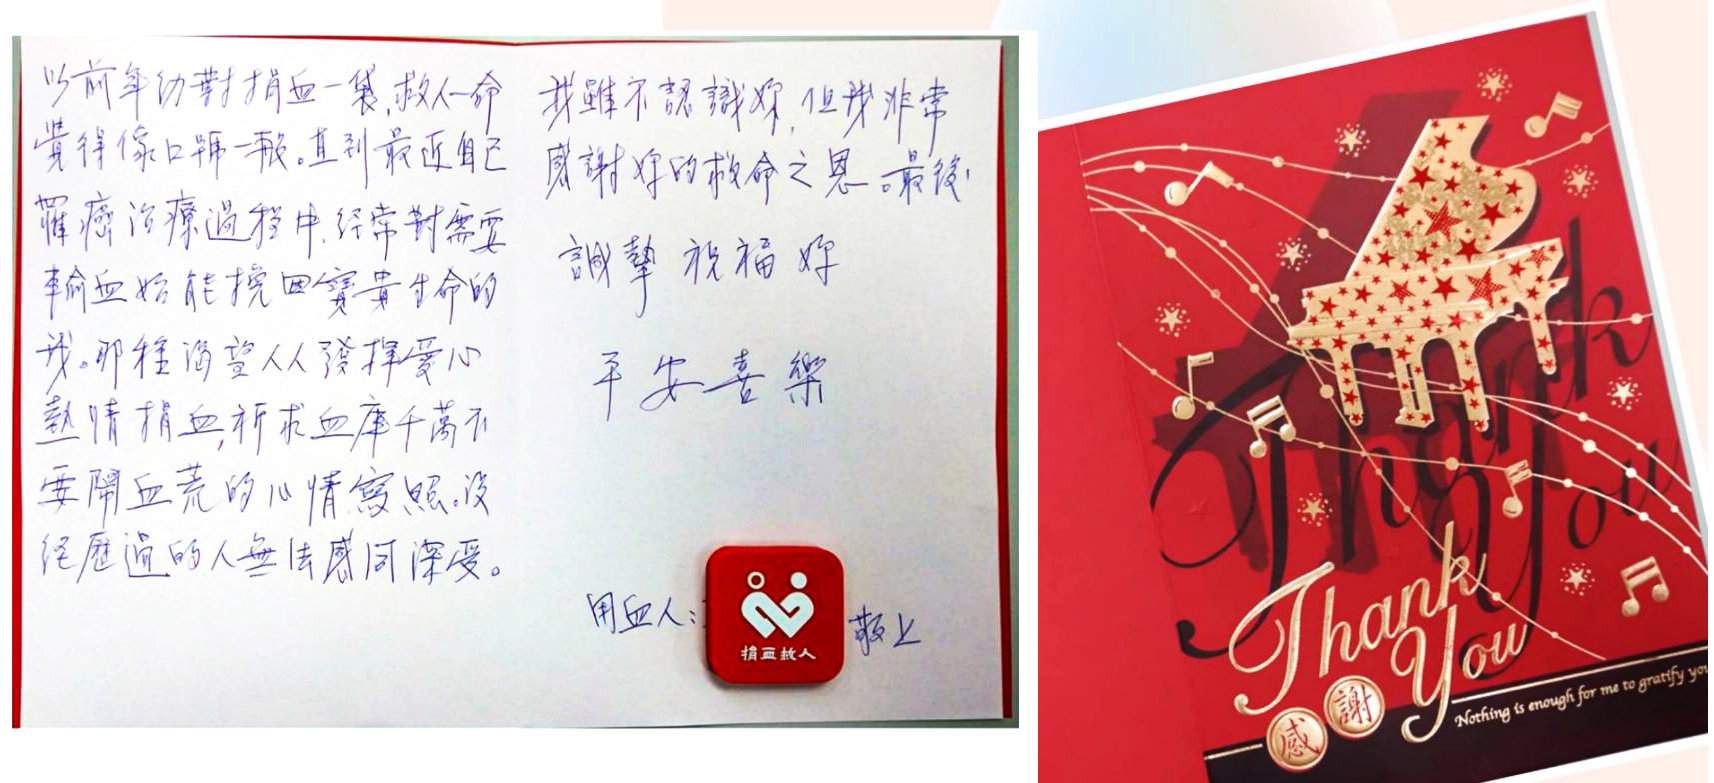 以前年幼對捐血一袋,救人一命
覺得像口號一般。直到最近自己
罹癌治療過程中,經常對需要
輸血始能挽回寶貴生命的
我。那種渴望人人發揮愛心
熱情捐血,祈求血庫千萬不
要鬧血荒的心情寫照。沒
經歷過的人無法感同深受。
我雖不認識妳,但我非常
感謝妳的救命之恩。最後,
誠摯祝福妳
平安喜樂
用血人:
敬上
捐血救人
Thank You
Thank
You
感謝
Nothing is enough for me to gratify you